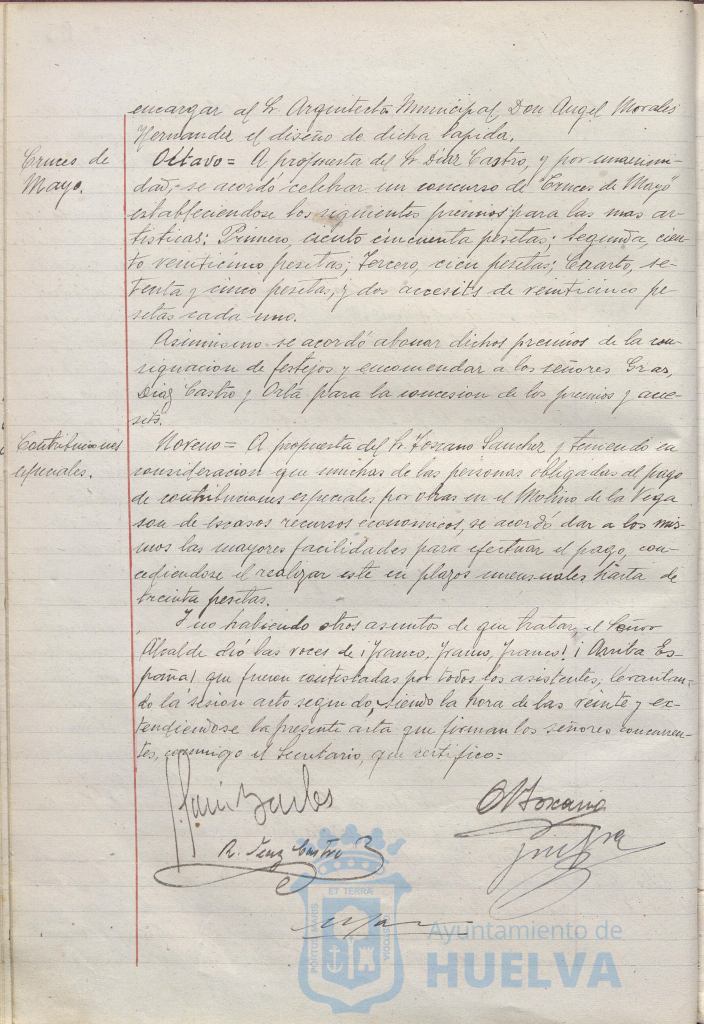 encargar al Sr. Arquitecto Municipal Don Angel Morales
Hernandez el diseño de dicha lapida.
Cruces de
Mayo.
Octavo = A propuesta del Sr. Diaz Castro, y por unanimi-
dad, se acordó celebrar un concurso de "Cruces de Mayo"
estableciendose los siguientes premios para las mas ar-
tisticas: Primero, ciento cincuenta pesetas; Segundo, cien-
to veinticinco pesetas; Tercero, cien pesetas; Cuarto, se-
tenta y cinco pesetas, y dos accesits de veinticinco pe
setas cada uno.
Asimismo se acordó abonar dichos premios de la con-
signacion de festejos y encomendar a los señores
Diaz Castro y Orta para la concesion de los premios y acce-
sits.
Contribuciones
especiales.
Noveno = A propuesta del Sr. Toscano Sanchez y teniendo en
consideracion que muchas de las personas obligadas al pago
de contribuciones especiales por obras en el Molino de la Vega
son de escasos recursos economicos, se acordó dar a los mis-
mos las mayores facilidades para efectuar el pago, con-
cediendose el realizar este en plazos mensuales hasta de
treinta pesetas.
Y no habiendo otros asuntos de que tratar, el Señor
Alcalde dió las voces de ¡Franco, Franco, Franco! ¡Arriba Es-
paña! que fueron contestadas por todos los asistentes, levantan-
do la sesion acto seguido, siendo la hora de las veinte y ex-
tendiendose la presente acta que firman los señores concurren-
tes, conmigo el Secretario, que certifico =
Toscano
R. Diaz Castro
PORTUS MARIS
ET TERRÆ
CUSTODIA
Ayuntamiento de
HUELVA